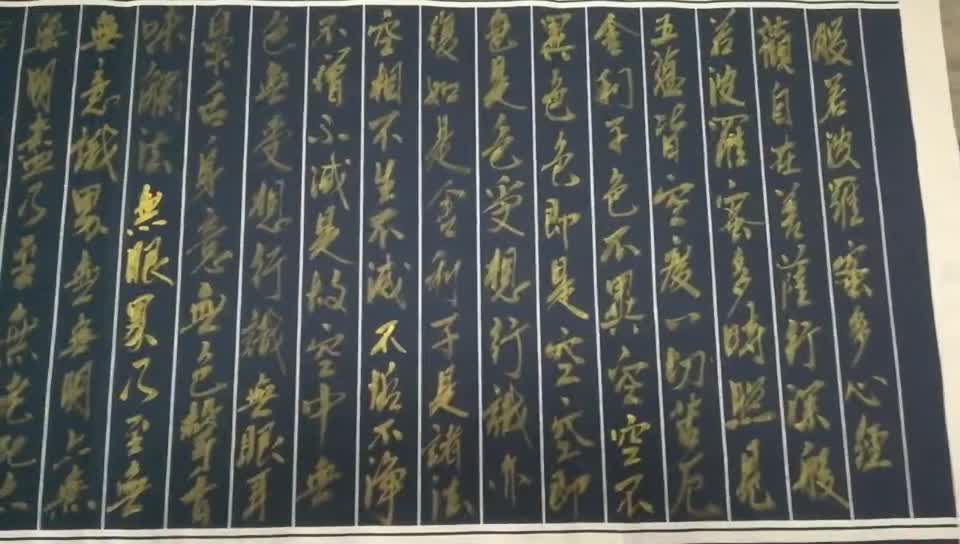 般若波羅蜜多心經
觀自在菩薩行深般
若波羅蜜多時照見
五蘊皆空度一切苦厄
舍利子色不異空空不
異色色即是空空即
是色受想行識亦
復如是舍利子是諸法
空相不生不滅不垢不淨
不增不減是故空中無
色無受想行識無眼耳
鼻舌身意無色聲香
味觸法無眼界乃至無
無意識界無無明亦無
無明盡乃至無老死亦